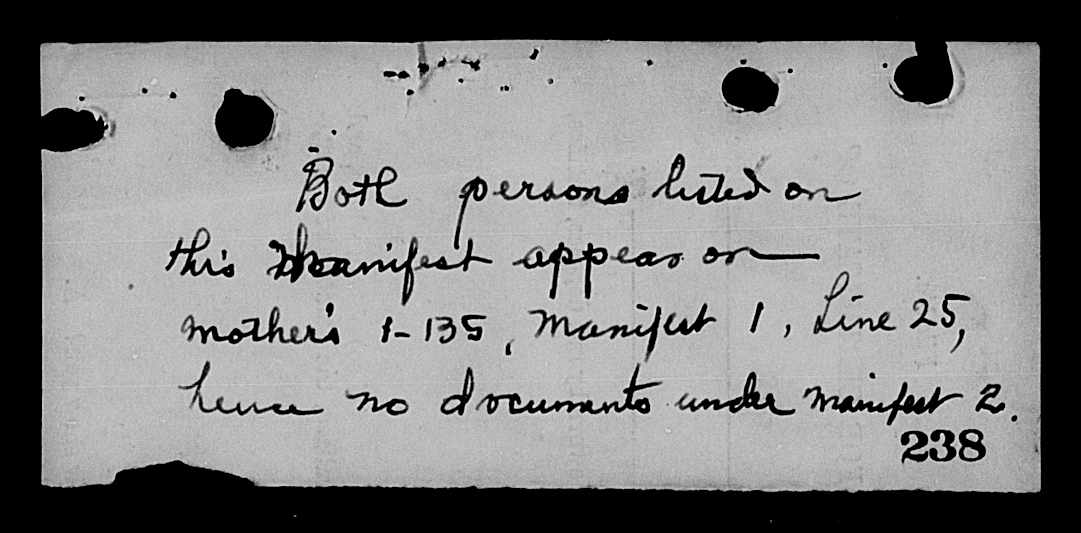 Both persons listed on
this Manifest appear on
mother's 1-135, Manifest 1, Line 25,
hence no documents under Manifest 2.
238